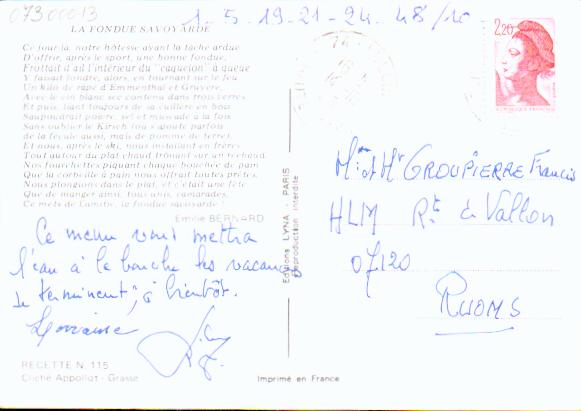 07300013
1_5_19_21_24_48/10
LA FONDUE SAVOYARDE
Ce jour là, notre hôtesse ayant la tâche ardue
D'offrir, après le sport, une bonne fondue,
Frottait d'ail l'intérieur du "caquelon" à queue
Y faisait fondre, alors, en tournant sur le feu
Un kilo de râpé d'Emmenthal et Gruyère,
Avec le vin blanc sec contenu dans trois verres
Et puis, tant toujours de sa cuillère en bois
Saupoudrait poivre, sel et muscade à la fois
Sans oublier le Kirsch (ou s'ajoute parfois
de la fécule aussi, mais de pomme de terre).
Et nous, après le ski, nous installant en frères
Tout autour du plat chaud trônant sur un réchaud,
Nos fourchettes piquant chaque bouchée de pain
Que la corbeille à pain nous offrait toutes prêtes,
Nous plongions dans le plat, et c'était une fête
Que de manger ainsi, tous unis, camarades,
Ce mets de Lamibe, la fondue savoyarde
Emilie BERNARD
Ce menu vous mettra
l'eau à la bouche les vacances
se terminent, à bientôt.
Lorraine
RECETTE N. 115
Cliché Appollot - Grasse
Editions LYNA - PARIS
Reproduction interdite
Imprimé en France
2,20
Mme et Mr GROUPIERRE Francis
HLM Rte de Vallon
07120
RUOMS